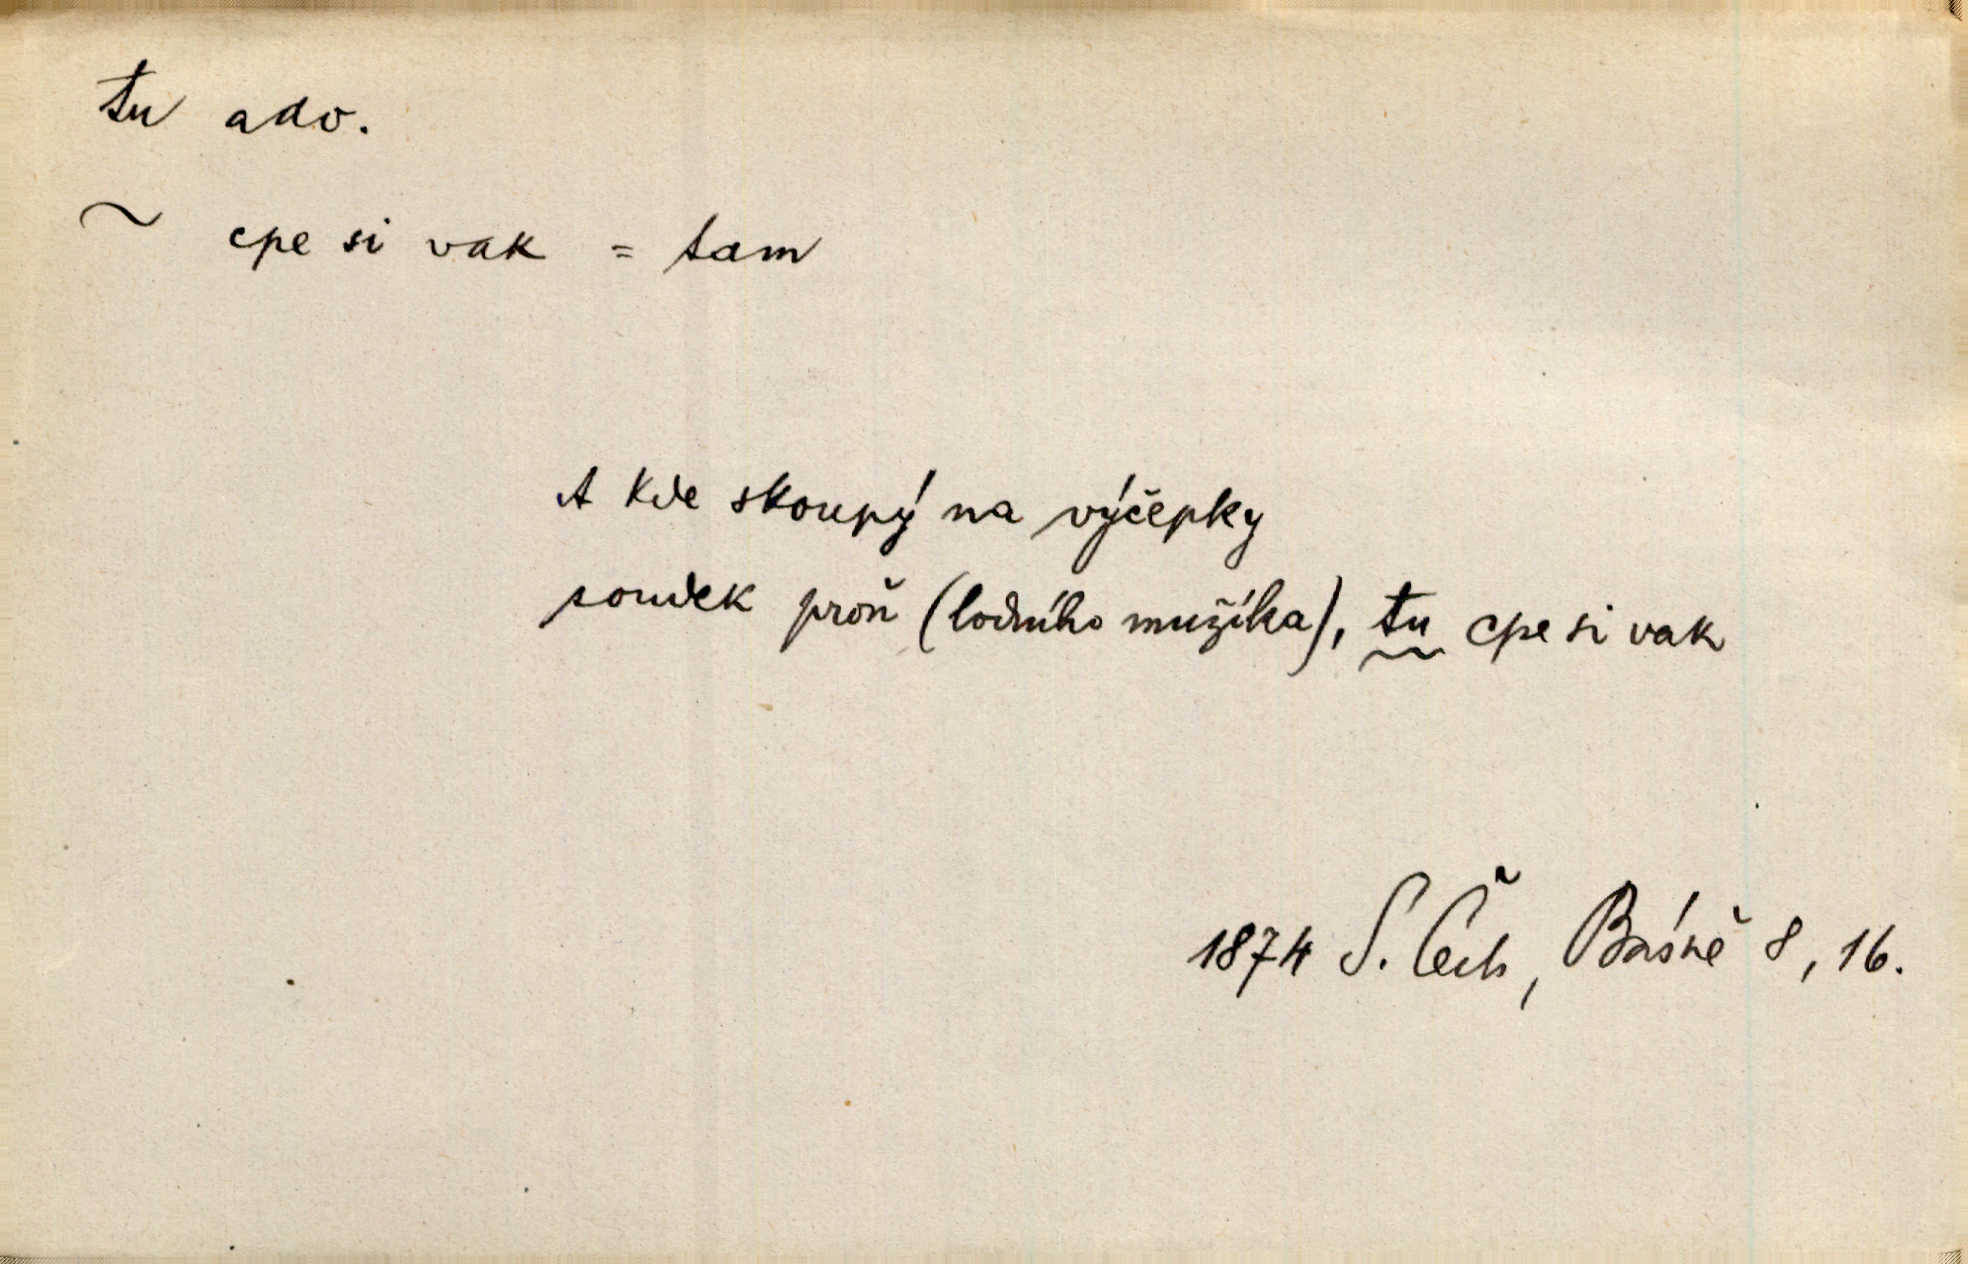 tu adv.
~ cpe si vak = tam
A kde skoupý na výčepky
soudek proň (lodního mužíka), tu cpe si vak
1874 S. Čech, Básně 8, 16.